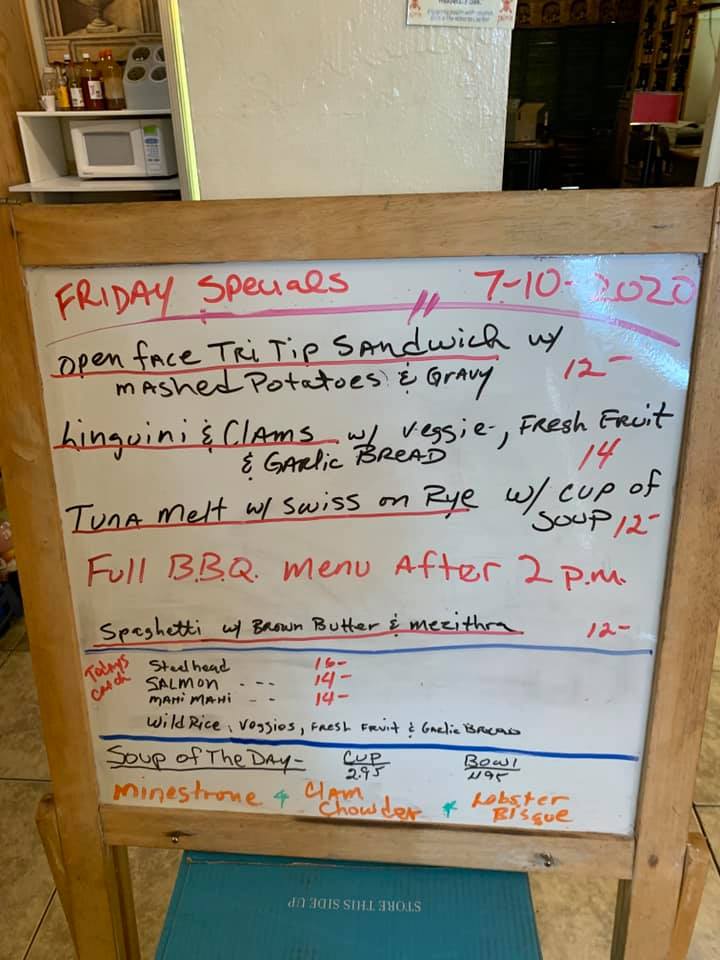 FRIDAY Specials 7-10-2020
Open face Tri Tip Sandwich w/
mashed Potatoes & Gravy 12-
Linguini & Clams w/ Veggie, Fresh Fruit
& Garlic Bread 14
Tuna melt w/ Swiss on Rye w/ cup of
Soup 12-
Full B.B.Q. menu After 2 p.m.
Spaghetti w/ Brown Butter & mezithra 12-
Todays
Catch
Steelhead 16-
SALMON --- 14-
MAHI MAHI -- 14-
Wild Rice, Veggies, Fresh Fruit & Garlic Bread
Soup of The Day- Cup Bowl
2.95 4.95
Minestrone & Clam Chowder * Lobster Bisque
STORE THIS SIDE UP